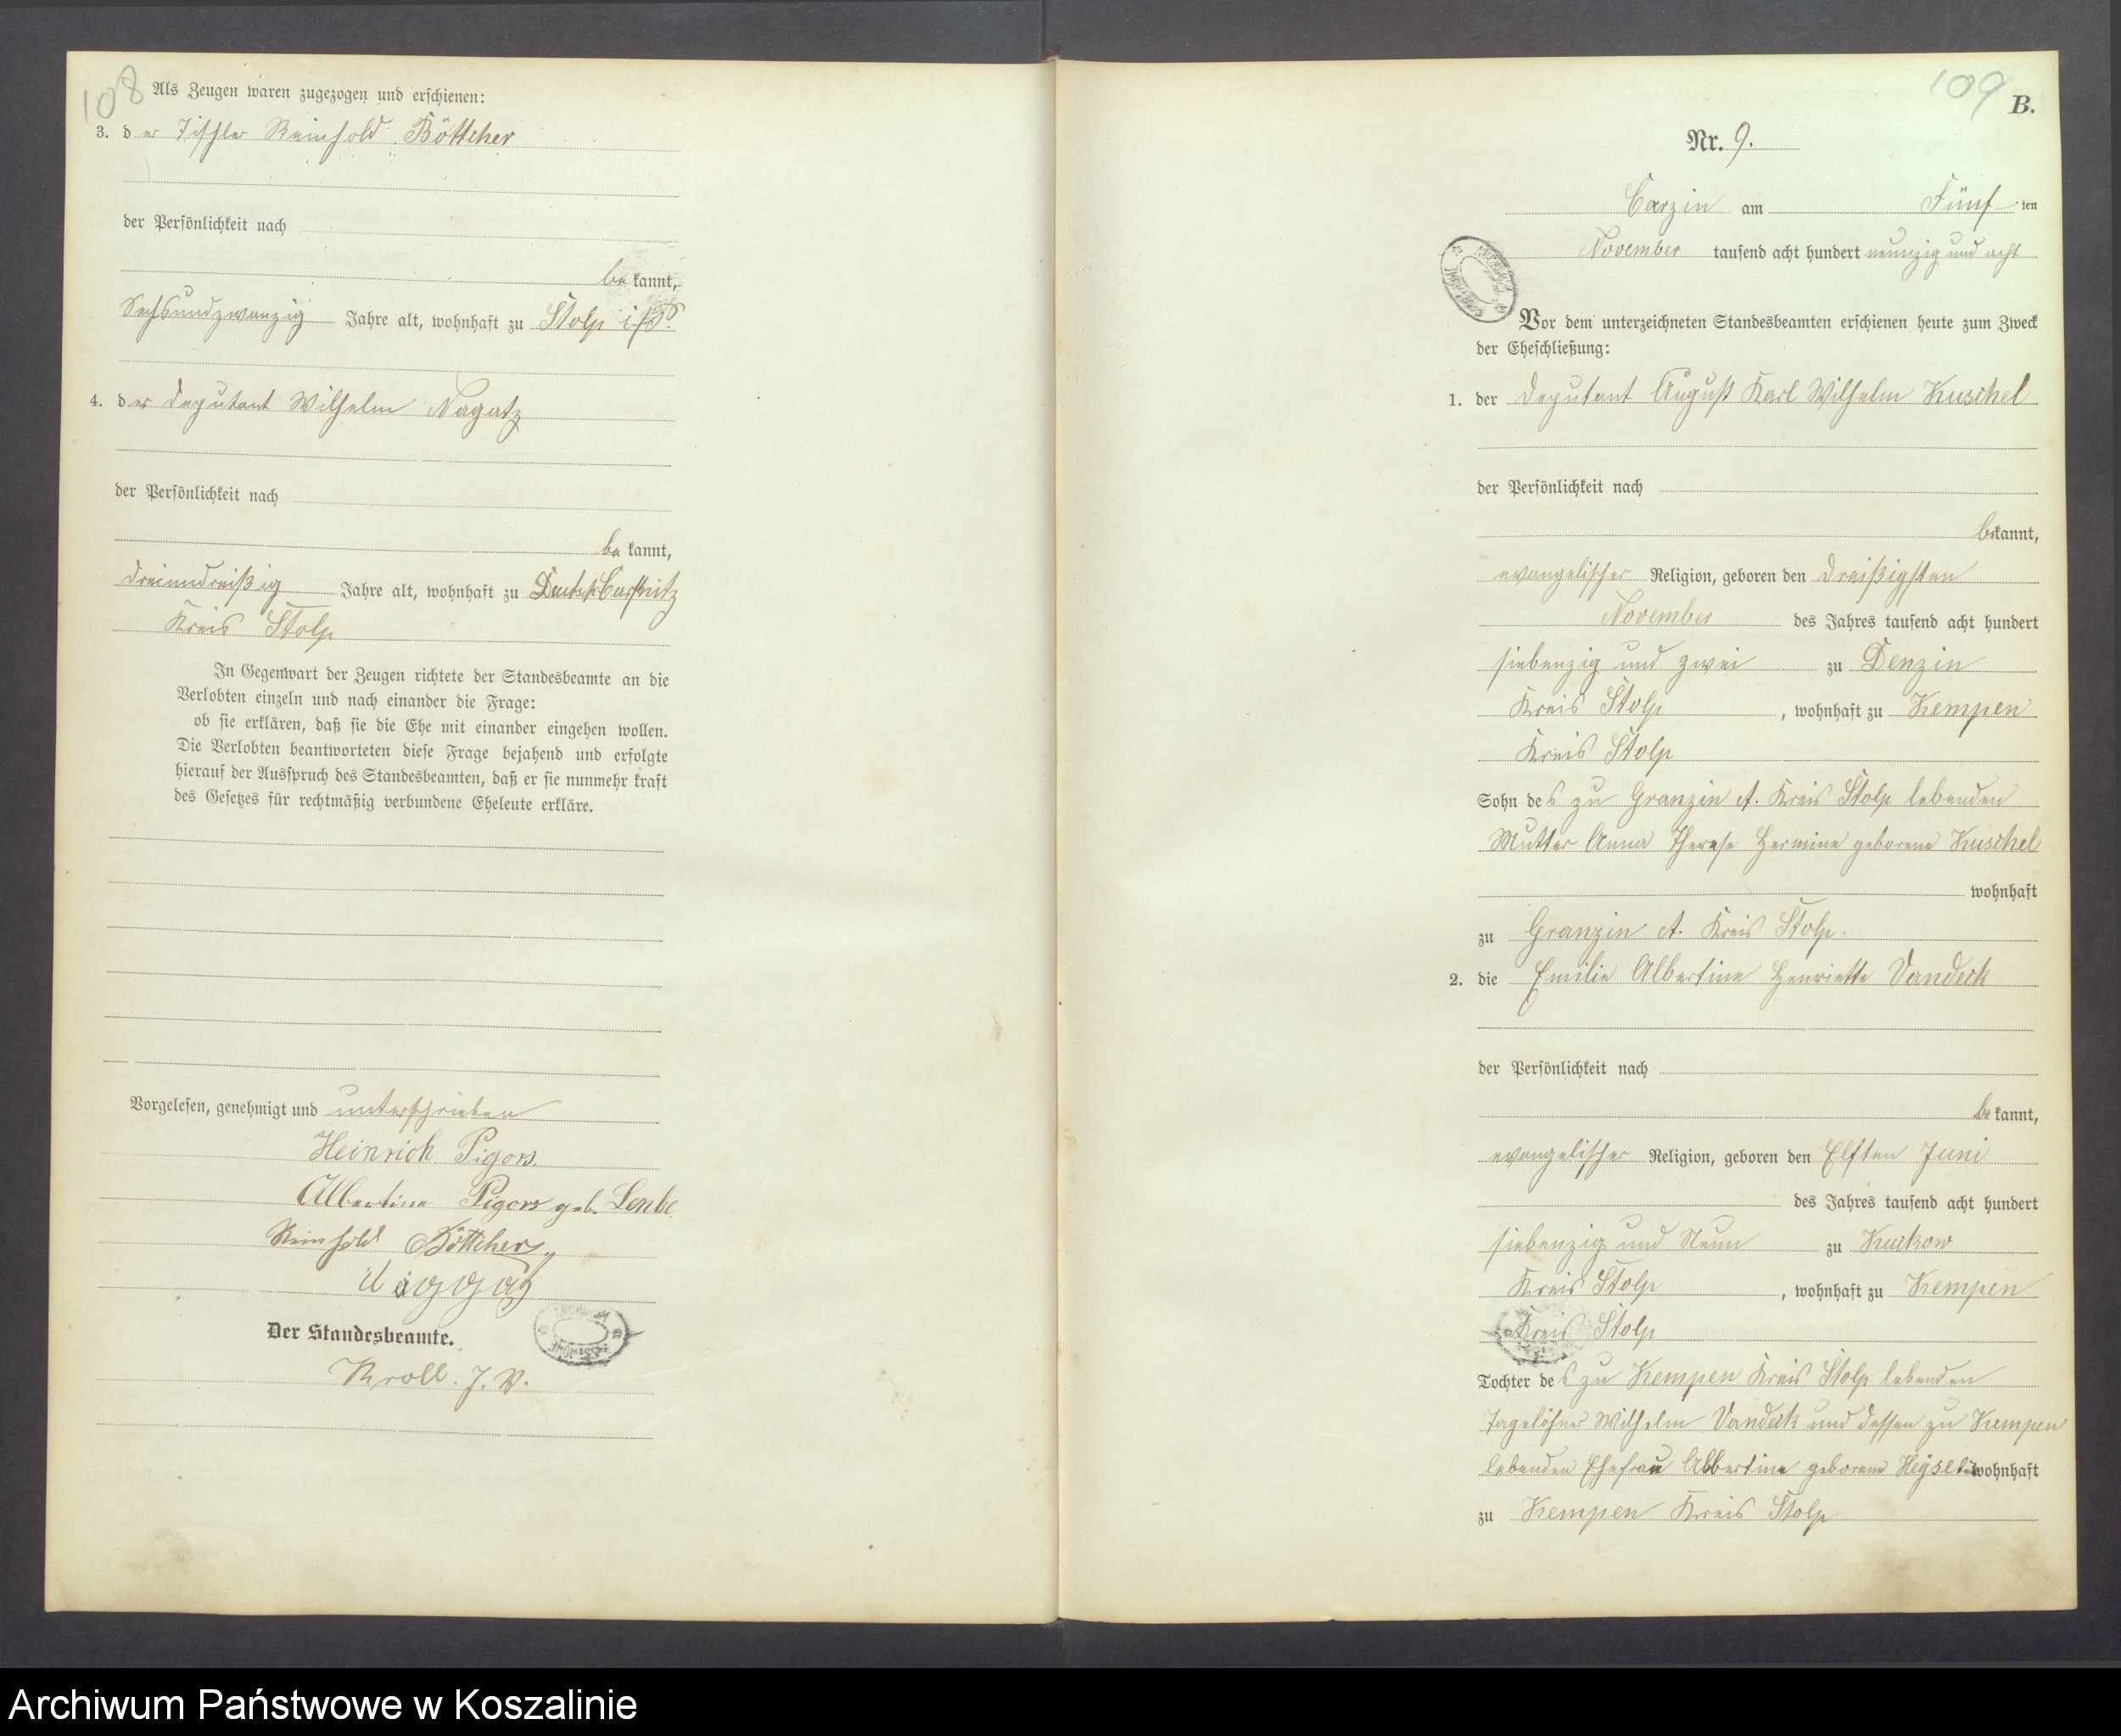 108
Als Zeugen waren zugezogen und erschienen:
3. der Tischler Reinhold Böttcher
der Persönlichkeit nach
bekannt,
Sechsundzwanzig Jahre alt, wohnhaft zu Stolp i/P.
4. der Deputant Wilhelm Nagatz
der Persönlichkeit nach
bekannt,
dreiunddreißig Jahre alt, wohnhaft zu Deutsch Carstnitz
Kreis Stolp
In Gegenwart der Zeugen richtete der Standesbeamte an die
Verlobten einzeln und nach einander die Frage:
ob sie erklären, daß sie die Ehe mit einander eingehen wollen.
Die Verlobten beantworteten diese Frage bejahend und erfolgte
hierauf der Ausspruch des Standesbeamten, daß er sie nunmehr kraft
des Gesetzes für rechtmäßig verbundene Eheleute erkläre.
Vorgelesen, genehmigt und unterschrieben
Heinrich Pigors.
Albertine Pigors geb.
Reinhold Böttcher
Der Standesbeamte.
Kroll. J. V.
109
B.
Nr. 9.
Carzin am Fünf ten
November tausend acht hundert neunzig und acht
Vor dem unterzeichneten Standesbeamten erschienen heute zum Zweck
der Eheschließung:
1. der Deputant August Karl Wilhelm Kuschel
der Persönlichkeit nach
bekannt,
evangelischer Religion, geboren den dreißigsten
November des Jahres tausend acht hundert
siebenzig und zwei zu Denzin
Kreis Stolp, wohnhaft zu Kempen
Kreis Stolp
Sohn des zu Granzin A. Kreis Stolp lebenden
Mutter Anna Therese Hermine geborene Kuschel
wohnhaft
zu Granzin A. Kreis Stolp.
2. die Emilie Albertine Henriette Vandeck
der Persönlichkeit nach
bekannt,
evangelischer Religion, geboren den Elften Juni
des Jahres tausend acht hundert
siebenzig und Neun zu Kukow
Kreis Stolp, wohnhaft zu Kempen
Kreis Stolp
Tochter des zu Kempen Kreis Stolp lebenden
Tagelöhner Wilhelm Vandeck und dessen zu Kempen
lebenden Ehefrau Albertine geborene wohnhaft
zu Kempen Kreis Stolp
Archiwum Państwowe w Koszalinie